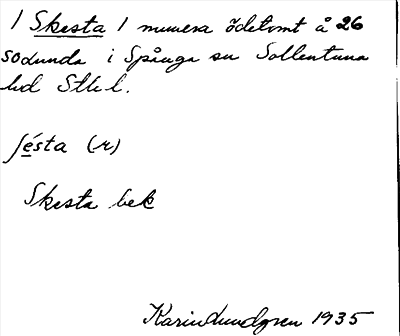 1 Skesta 1 numera ödetomt å 26
Sodunda i Spånga sn Sollentuna
hd Sthl l.
ʃésta (r)
Skesta bek
Karin Lundgren 1935